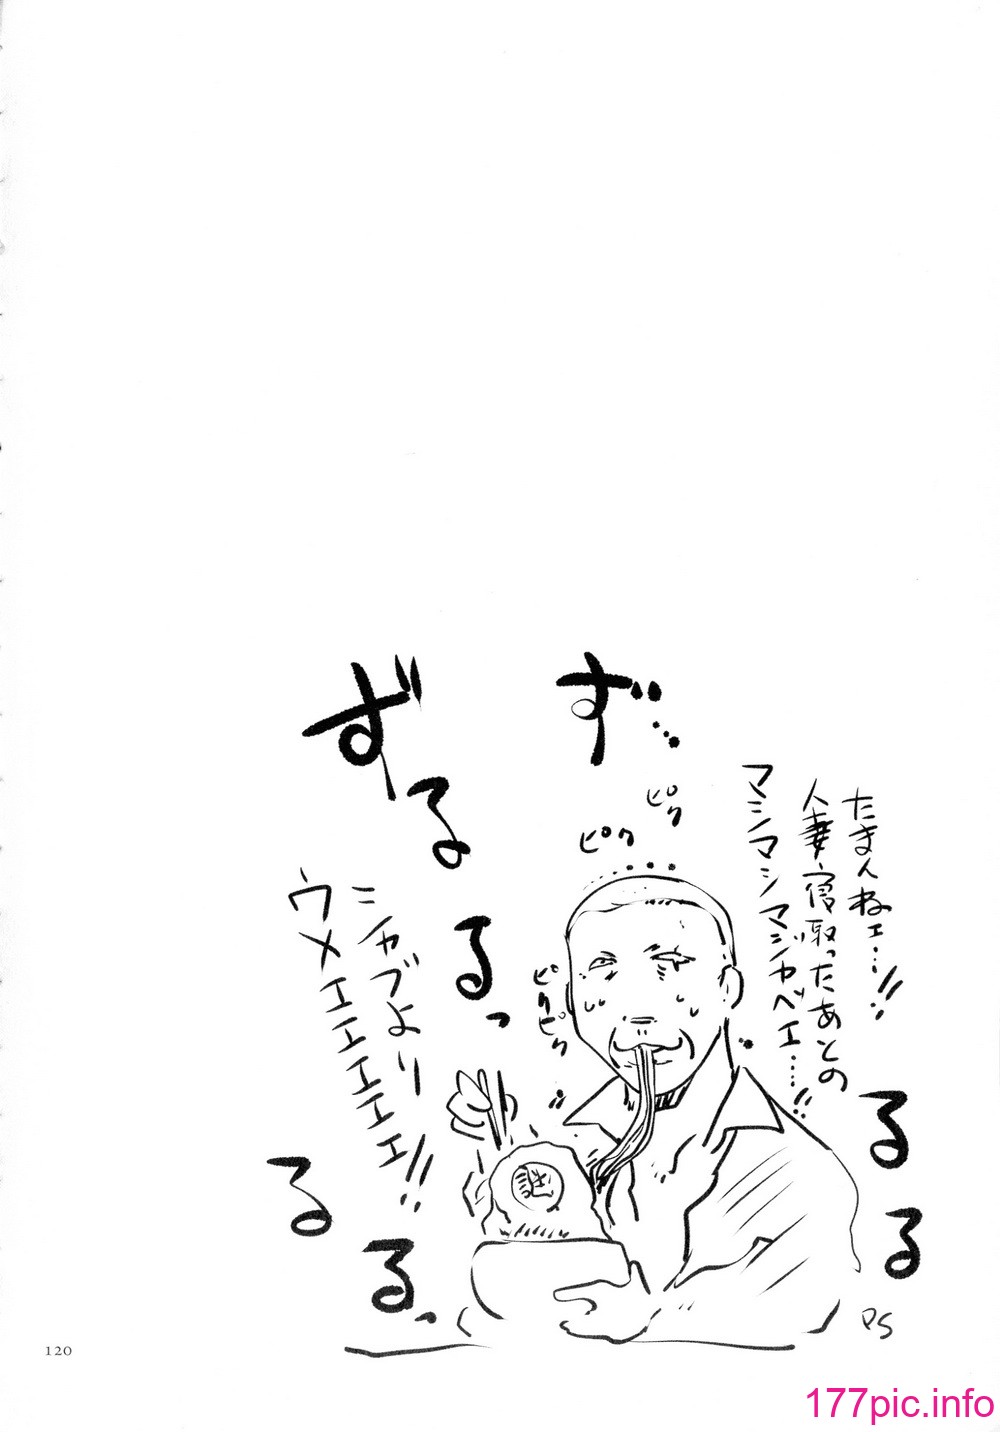 ず…
たまんねェ…!!
人妻寝取ったあとの
マシマシマジヤベエ……!!
ピク
ピク
ピク
ピク
ずるるっ
シャブより
ウメエエエエエエ!!
謎
るる
るるっ
PS
120
177pic.info